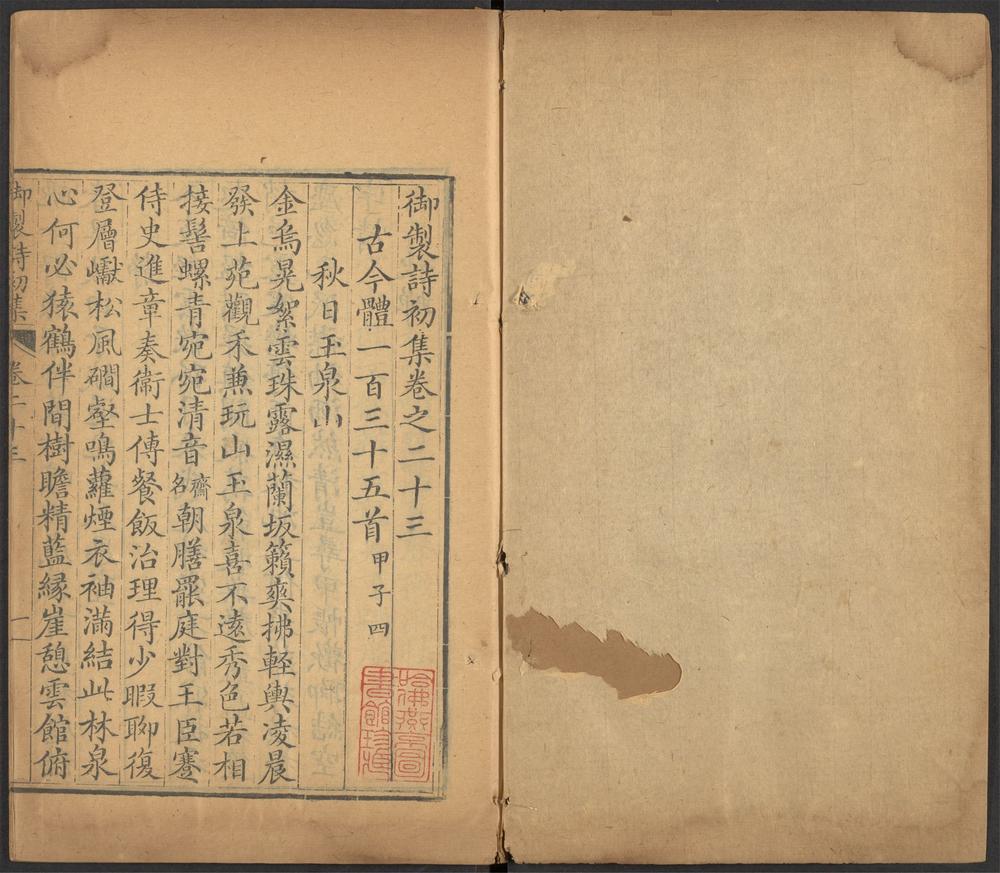 御製詩初集卷之二十三
古今體一百三十五首甲子四
秋日玉泉山
金烏晃絮雲珠露濕蘭坂籟爽拂軽輿凌晨
發上苑觀禾兼玩山玉泉喜不遠秀色若相
接髻螺青宛宛清音齋名朝膳罷庭對王臣蹇
侍史進章奏衞士傳餐飯治理得少暇聊復
登層巘松風磵壑鳴蘿煙衣袖滿結此林泉
心何必猿鶴伴間樹瞻精藍緣崖憩雲館俯
御製詩初集 卷二十三 一
哈佛燕京圖書館珍藏